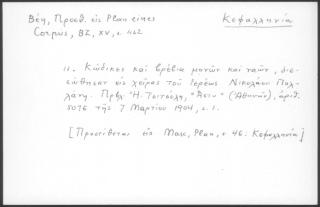 Βέη, Προσθ. εἰς Plan eines
Corpus, BZ, XV, σ. 462
Κεφαλληνία
11. Κώδικες καὶ βρέβια μονῶν καὶ ναῶν, διε-
σώθησαν εἰς χεῖρας τοῦ ἱερέως Νικολάου
Πρβλ. Ἠ. Τσιτσέλη, "Ἄστυ" (Ἀθηνῶν), ἀριθ.
5076 τῆς 7 Μαρτίου 1904, σ. 1.
[Προστίθεται εἰς Marc, Plan, σ. 46: Κεφαλληνία]